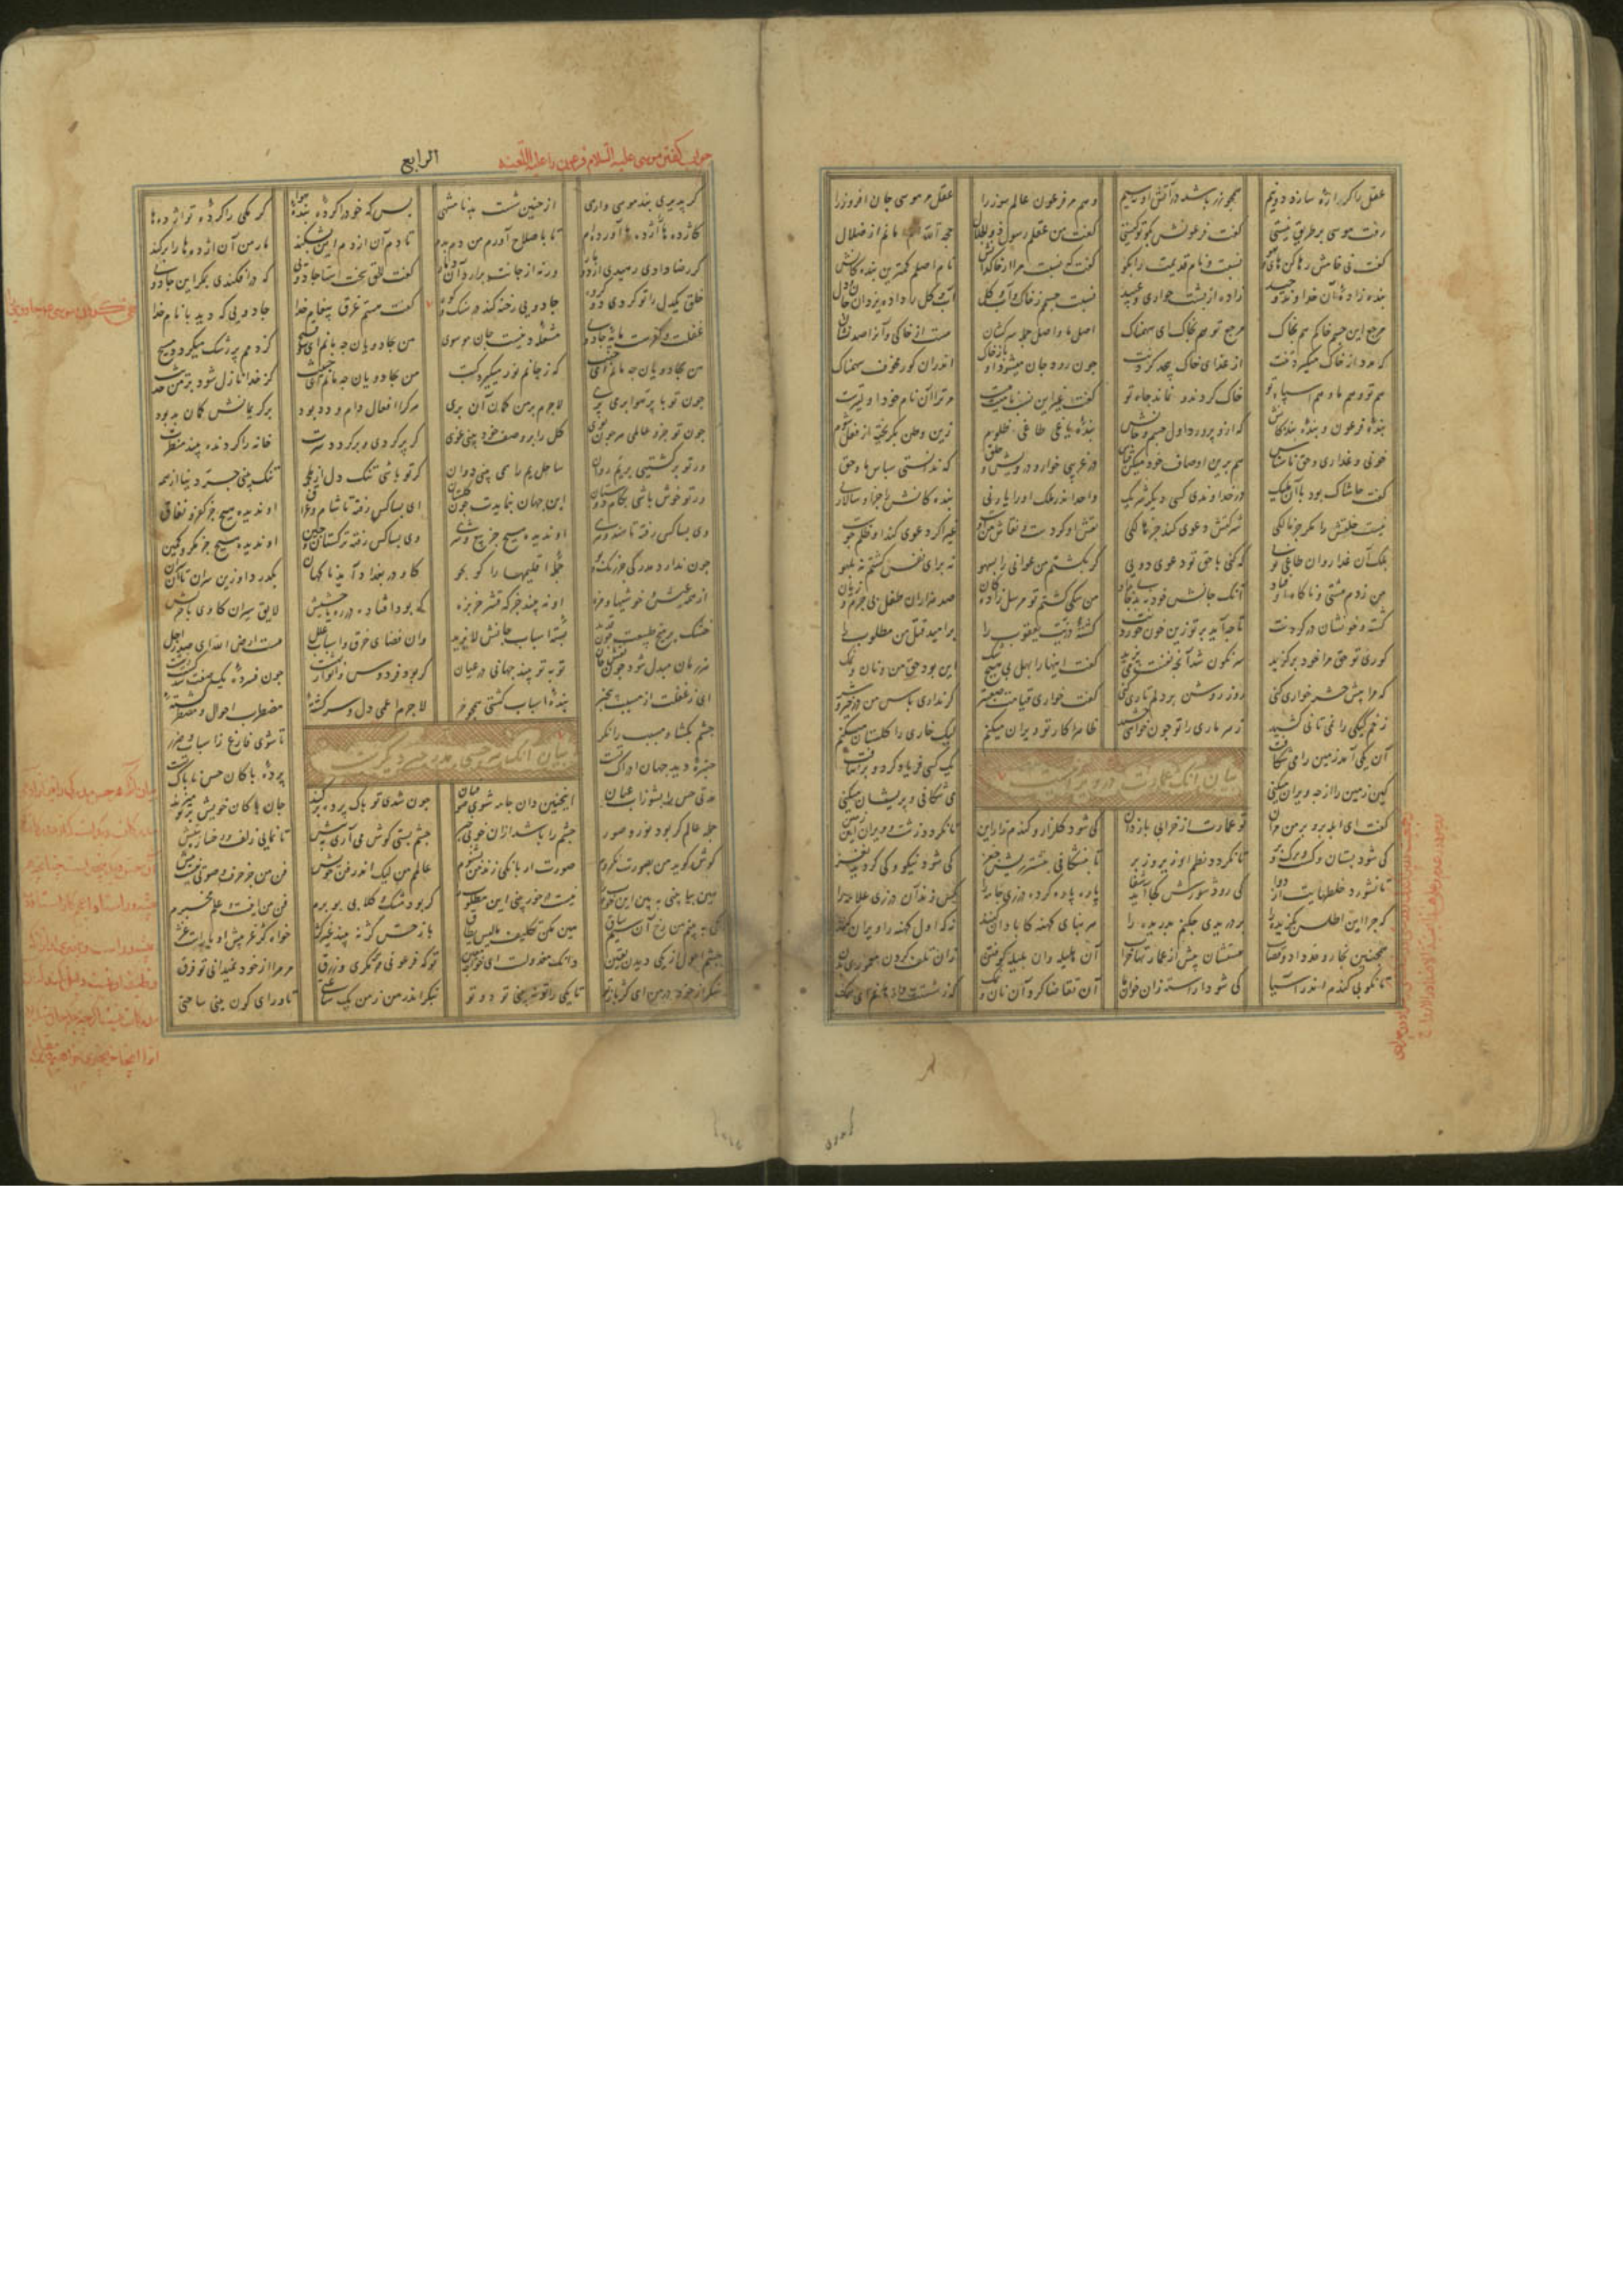 عقل را گر اره سازد دو نیم همچو زر باشد در آتش او بسیم وهم مر فرعون عالم سوز را عقل مر موسی جان افروز را
رفت موسی بر طریق نیستی گفت فرعونش بگو تو کیستی گفت من عقلم رسول ذوالجلال حجة الله ام امانم از ضلال
گفت نی خامش رها کن های هو نسبت و نام قدیمت را بگو گفت که نسبت مرا از خاکدانش نام اصلم کمترین بندکانش
بنده زاده آن خداوند وحید زاده از پشت جواری و عبید نسبت جسمم ز خاک و آب و گل آب و گل را داد یزدان جان و دل
مرجع این جسم خاکم هم بخاک مرجع تو هم بخاک ای سهمناک اصل ما و اصل جمله سرکشان هست از خاکی و آنرا صد نشان
که مدد از خاک میگیرد تنت از غذای خاک پیچد گردنت چون رود جان میشود او باز خاک اندران کور مخوف سهمناک
هم تو و هم ما و هم اشباه تو خاک گردند و نماند جاه تو گفت غیر این نسب نامیت هست مر ترا آن نام خود اولیترست
بنده فرعون و بنده بندکانش که ازو پرورد اول جسم و جانش بنده یاغی طاغی ظلوم زین وطن بگریخته از فعل شوم
خونی و غداری و حق ناشناس هم برین اوصاف خود میکن قیاس در غریبی خوار و درویش و خلق که ندانستی سپاس ما و حق
گفت حاشا که بود با آن ملیک در خداوندی کسی دیگر شریک واحد اندر ملک او را یار نی بندکانش را جز او سالار نی
نیست خلقش را دگر جز مالکی شرکتش دعوی کند جز هالکی نقش او کردست و نقاش من اوست غیر اگر دعوی کند او ظلم جوست
بلک آن غدار و آن طاغی توی که کنی با حق تو دعوی دویی گر بکشتم من عوانی را بسهو نه برای نفس کشتم نه بلهو
من زدم مشتی و ناگاه او فتاد آنک جانش خود نبد جانی بداد من سگی کشتم تو مرسل زادکان صد هزاران طفل بی جرم و زیان
کشته و خونشان در گردنت تا چه آید بر تو زین خون خوردنت کشته ذریت یعقوب را بر امید قتل من مطلوب را
کوری تو حق مرا خود برگزید سرنگون شد آنچ نفست می پزید گفت اینها را بهل بی هیچ شک این بود حق من و نان و نمک
که مرا پیش حشر خواری کنی روز روشن بر دلم تاری کنی گفت خواری قیامت صعبتر گر نداری پاس من در خیر و شر
زخم کیکی را نمی تانی کشید زهر ماری را تو چون خواهی چشید ظاهرا کار تو ویران میکنم لیک خاری را گلستان میکنم
بیان آنک عمارت در ویرانیست
آن یکی آمد زمین را می شکافت یک کسی فریاد کرد و بر نتافت
کین زمین را از چه ویران میکنی می شکافی و پریشان میکنی
گفت ای ابله برو بر من مران تو عمارت از خرابی باز دان کی شود گلزار و گندم زار این تا نگردد زشت و ویران این زمین
کی شود بستان و کشت و برگ و بر تا نگردد نظم او زیر و زبر تا بنشکافی بنشتر ریش چغز کی شود نیکو و کی گردید نغز
تا نشورد خلطهایت از دوا کی رود شورش کجا آید شفا پاره پاره کرده درزی جامه را کس زند آن درزی علامه را
که چرا این اطلس بگزیده را بر دریدی چکنم بدریده را هر بنای کهنه کابادان کنند نه که اول کهنه را ویران کنند
همچنین نجار و حداد و قصاب هستشان پیش از عمارتها خراب آن هلیله وان بلیله کوفتن زان تلف گردند معموری تن
تا نکوبی گندم اندر آسیا کی شود آراسته زان خوان ما آن تقاضا کرد آن نان و نمک که ز شستت وا رهانم ای سمک
جواب گفتن موسی علیه السلام فرعون را علیه اللعنه
الرابع
گر پذیری پند موسی وارهی از چنین شست بد نامنتهی بس که خود را کرده بنده هوا کرمکی را کرده تو اژدها
اژدها را اژدها آورده ام تا باصلاح آورم من دم بدم تا دم آن از دم این بشکند مار من آن اژدها را برکند
گر رضا دادی رهیدی از دو مار ورنه از جانت برآرد آن دمار گفت الحق سخت استا جادوی که در افکندی بمکر این جادوی
خلق یکدل را تو کردی دو گروه جادویی رخنه کند در سنگ و کوه گفت هستم غرق پیغام خدا جادویی که دید با نام خدا
غفلت و کفرست مایه جادوی مشعله دینست جان موسوی من بجادویان چه مانم ای وقیح کز دمم پر رشک میگردد مسیح
من بجادویان چه مانم ای جنب که ز جانم نور میگیرد کتب من بجادویان چه مانم ای خبیث کز خدا نازل شود بر من حدیث
چون تو با پر هوا بر می پری لاجرم بر من گمان آن بری هر کرا افعال دام و دد بود بر کریمانش گمان بد بود
چون تو جزو عالمی هر چون بوی کل را بر وصف خود بینی غوی گر تو برگردی و برگردد سرت خانه را گردنده بیند منظرت
ور تو در کشتی بریم روان ساحل یم را همی بینی دوان گر تو باشی تنگ دل از ملحمه تنگ بینی جو دنیا را همه
ور تو خوش باشی بکام دوستان این جهان بنماید چون گلستان ای بسا کس رفته تا شام و عراق او ندیده هیچ جز کفر و نفاق
وی بسا کس رفته تا هند و هری او ندیده هیچ جز بیع و شری وی بسا کس رفته ترکستان و چین او ندیده هیچ جز مکر و کمین
چون ندارد مدرکی جز رنگ و بو جمله اقلیمها را گو بجو گاو در بغداد آید ناگهان بگذرد او زین سران تا آن کران
از همه عیش و خوشیها و مزه او نه بیند جز که قشر خربزه که بود افتاده در ره یا حشیش لایق سیران گاوی یا خریش
خشک بر میخ طبیعت چون قدید بسته اسباب جانش لا یزید وان فضای خرق و اسباب علل هست ارض الله ای صدر اجل
هر زمان مبدل شود چون نقش جان نو به نو بیند جهانی در عیان گر بود فردوس و انهار بهشت چون فسرده یک صفت شد گشت زشت
ای ز غفلت از مسبب بیخبر بنده اسباب کشتی همچو خر لاجرم اعمی دل و سرگشته مضطرب احوال و مضطر گشته
چشم بگشا و مسبب را نگر تا شوی فارغ ز اسباب و ضرر
بیان آنک هر حس مدرک را چیز دیگرست
چنبره دید جهان ادراک تست پرده پاکان حس ناپاک تست
مدتی حس را بشو ز آب عیان اینچنین دان جامه شوی صوفیان چون شدی تو پاک پرده بر کند جان پاکان خویش بر تو میزند
جمله عالم گر بود نور و صور چشم را باشد از آن خوبی خبر چشم بستی گوش می آری به پیش تا نمایی زلف و رخساره بتیش
گوش گوید من بصورت نگروم صورت ار بانگی زند من بشنوم عالمم من لیک اندر فن خویش فن من جز حرف و صوتی نیست بیش
هین بیا بینی ببین این خوب را نیست در خور بینی این مطلوب را گر بود مشک و گلابی بو برم فن من اینست و علم و مخبرم
کی ببینم من رخ آن سیم ساق هین مکن تکلیف ما لیس یطاق باز حس کژ نه بیند غیر کژ خواه کژ غژ پیش او یا راست غژ
چشم احول از یکی دیدن یقین دانک معزولست ای خواجه معین تو که فرعونی همه مکری و زرق مر مرا از خود نمیدانی تو فرق
منگر از خود در من ای کژباز تو تا یکی را تو نه بینی دو تو بنگر اندر من ز من یک ساعتی تا ورای کون بینی ساحتی